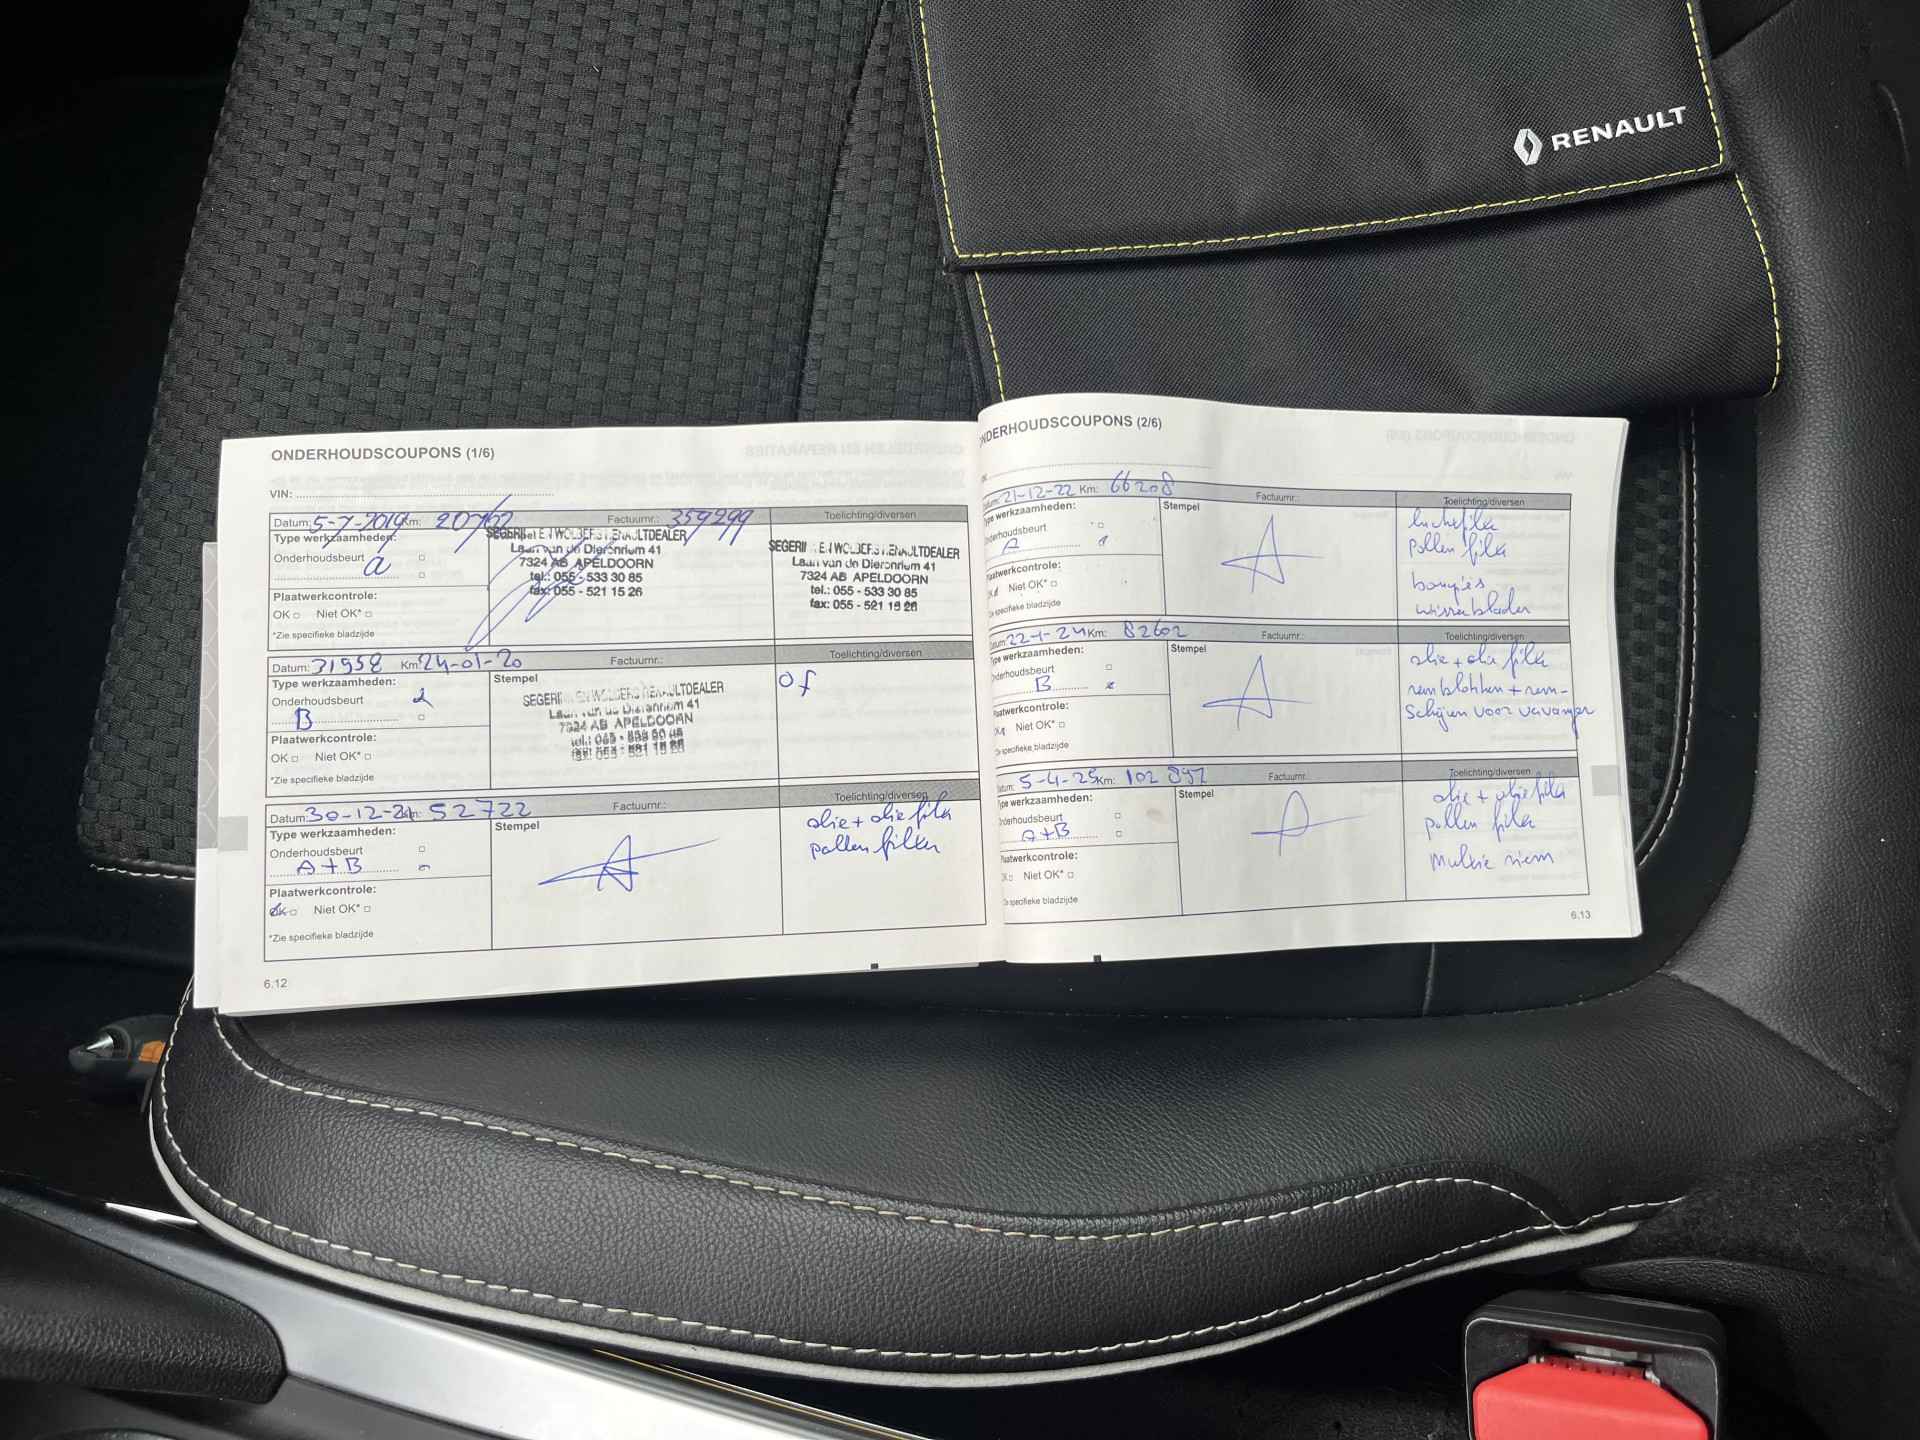 RENAULT
ONDERHOUDSCOUPONS (1/6)
VIN:
Datum: 5-7-2019 Km: Factuurnr.: 359299 Toelichting/diversen
Type werkzaamheden:
Onderhoudsbeurt
a
Plaatwerkcontrole:
OK Niet OK*
*Zie specifieke bladzijde
RENAULTDEALER
Laan van de Dierenriem 41
7324 AB APELDOORN
tel.: 055 - 533 30 85
fax: 055 - 521 15 26
RENAULTDEALER
Laan van de Dierenriem 41
7324 AB APELDOORN
tel.: 055 - 533 30 85
fax: 055 - 521 15 26
Datum: 31958 Km: 24-01-20 Factuurnr.: Toelichting/diversen
Type werkzaamheden:
Onderhoudsbeurt
B
Plaatwerkcontrole:
OK Niet OK*
*Zie specifieke bladzijde
Stempel
RENAULTDEALER
Laan van de Dierenriem 41
7324 AB APELDOORN
Of
Datum: 30-12-21 Km: 52722 Factuurnr.: Toelichting/diversen
Type werkzaamheden:
Onderhoudsbeurt
A+B
Plaatwerkcontrole:
OK Niet OK*
*Zie specifieke bladzijde
Stempel
olie + olie filter
pollen filter
6.12
ONDERHOUDSCOUPONS (2/6)
Datum: 21-12-22 Km: 66208 Factuurnr.: Toelichting/diversen
Type werkzaamheden:
Onderhoudsbeurt
A
Plaatwerkcontrole:
OK Niet OK*
Zie specifieke bladzijde
Stempel
luchtfilter
pollen filter
bougies
wisserbladen
Datum: 22-1-24 Km: 82602 Factuurnr.: Toelichting/diversen
Type werkzaamheden:
Onderhoudsbeurt
B
Plaatwerkcontrole:
OK Niet OK*
Zie specifieke bladzijde
Stempel
olie + olie filter
remblokken + rem-
schijven voor vervangen
Datum: 5-4-25 Km: 102 897 Factuurnr.: Toelichting/diversen
Type werkzaamheden:
Onderhoudsbeurt
A+B
Plaatwerkcontrole:
OK Niet OK*
Zie specifieke bladzijde
Stempel
olie + olie filter
pollen filter
Multie riem
6.13